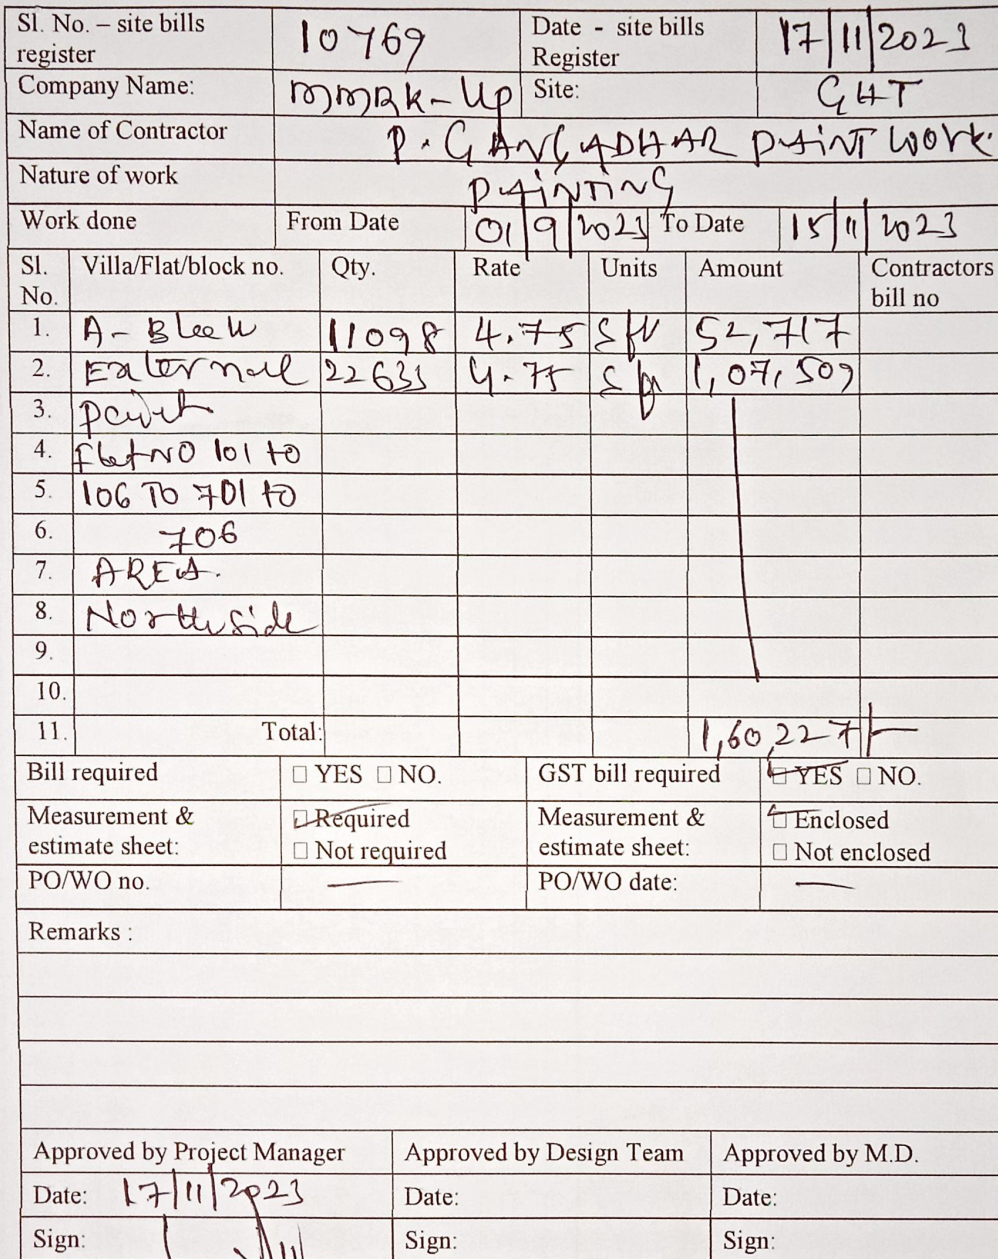 Sl. No. – site bills register 10769 Date - site bills Register 17/11/2023
Company Name: MMRK-Up Site: GHT
Name of Contractor P. GANGADHAR PAINT WORK.
Nature of work PAINTING
Work done From Date 01/9/2023 To Date 15/11/2023
Sl. No. Villa/Flat/block no. Qty. Rate Units Amount Contractors bill no
1. A- Block 11098 4.75 Sft 52,717
2. External 22633 4.75 Sft 1,07,509
3. paint
4. flat NO 101 to
5. 106 TO 701 to
6. 706
7. AREA.
8. North side
9.
10.
11. Total: 1,60,227/-
Bill required □ YES □ NO. GST bill required □ YES □ NO.
Measurement & estimate sheet: □ Required □ Not required Measurement & estimate sheet: □ Enclosed □ Not enclosed
PO/WO no. — PO/WO date: —
Remarks :
Approved by Project Manager Approved by Design Team Approved by M.D.
Date: 17/11/2023 Date: Date:
Sign: Sign: Sign: